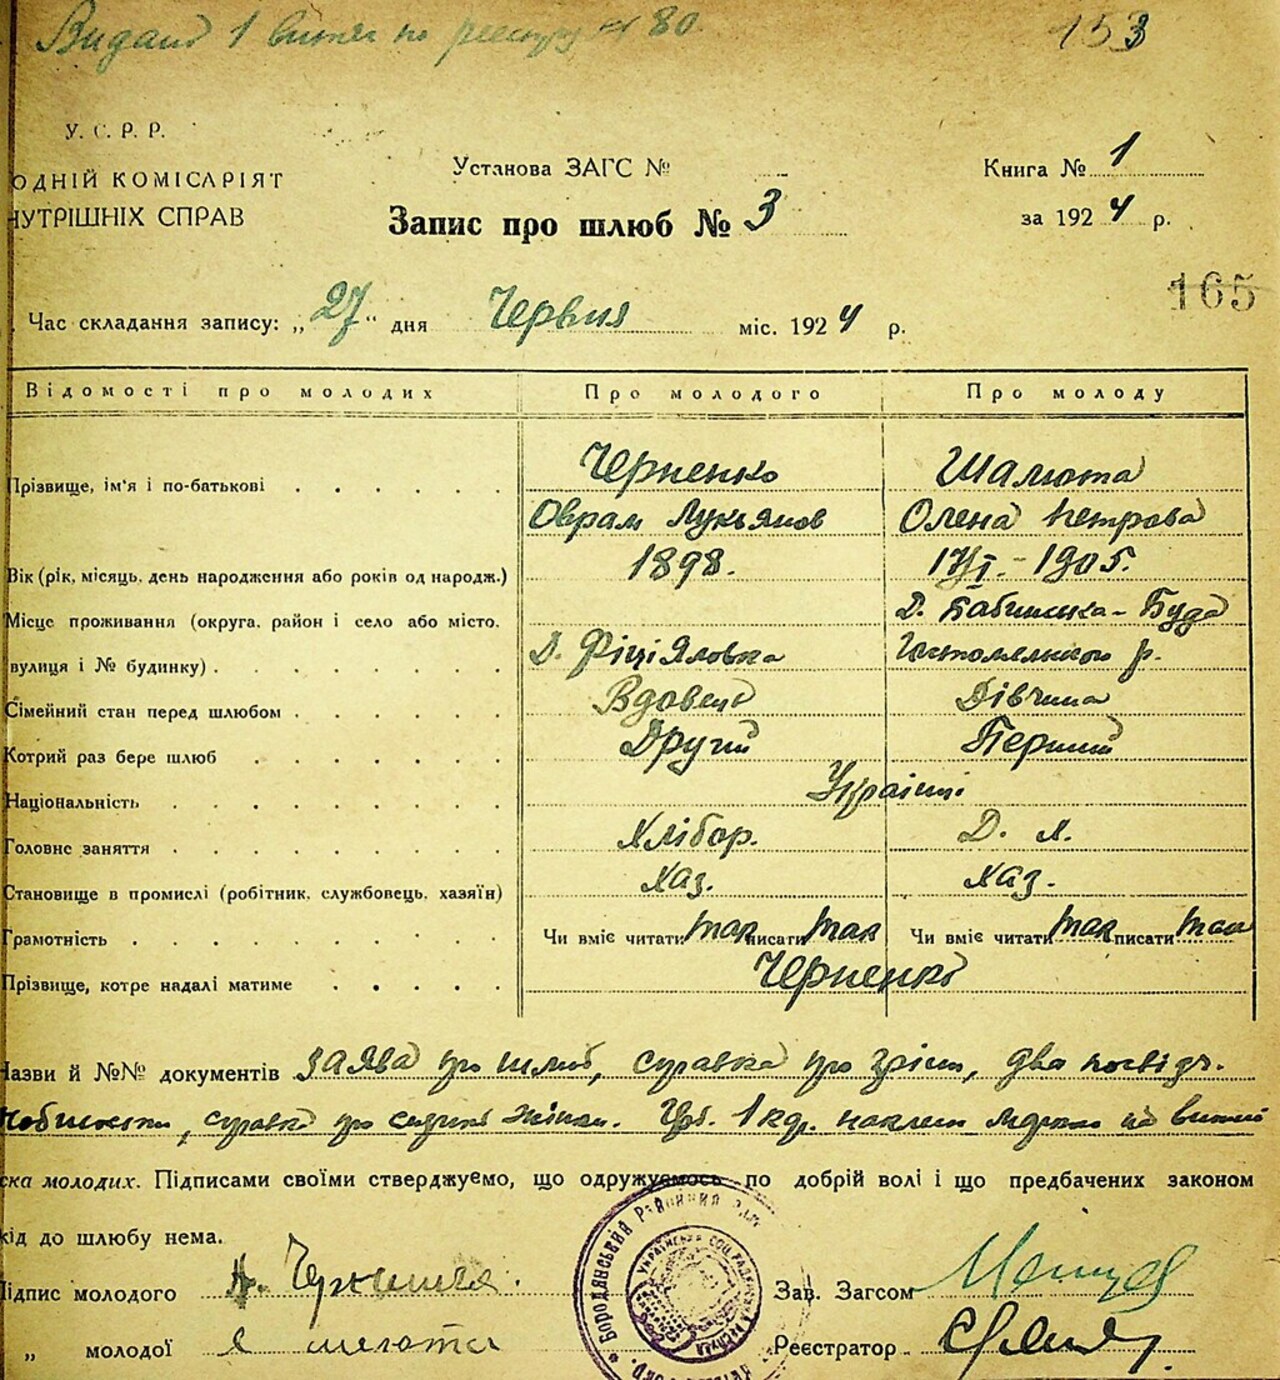 Видано 1 витяг по реєстру № 80
153
У. С. Р. Р.
ОДНІЙ КОМІСАРІЯТ
НУТРІШНІХ СПРАВ
Установа ЗАГС №
Запис про шлюб № 3
Книга № 1
за 1924 р.
165
Час складання запису: „27“ дня Червня міс. 1924 р.
Відомості про молодих Про молодого Про молоду
Прізвище, ім'я і по-батькові Черненко Шалюта
Оврам Лукьянов Олена Петрова
Вік (рік, місяць, день народження або років од народж.) 1898. 17/VI - 1905.
Місце проживання (округа, район і село або місто, Д. Бабинська-Буда
вулиця і № будинку) Д. Яловка р.
Сімейний стан перед шлюбом Вдовець Дівчина
Котрий раз бере шлюб Другий Перший
Національність Українці
Головне заняття Хлібор. Д. Х.
Становище в промислі (робітник, службовець, хазяїн) Хаз. Хаз.
Грамотність Чи вміє читати так писати так Чи вміє читати так писати так
Прізвище, котре надалі матиме Черненко
Назви й №№ документів заява про шлюб, справка про два посвідч.
справка про 1 кр.
ска молодих. Підписами своїми стверджуємо, що одружуємось по добрій волі і що предбачених законом
кід до шлюбу нема.
Підпис молодого
Зав. Загсом
„ молодої
Реєстратор
Бородянський Районний
Українська Соц. Радянська